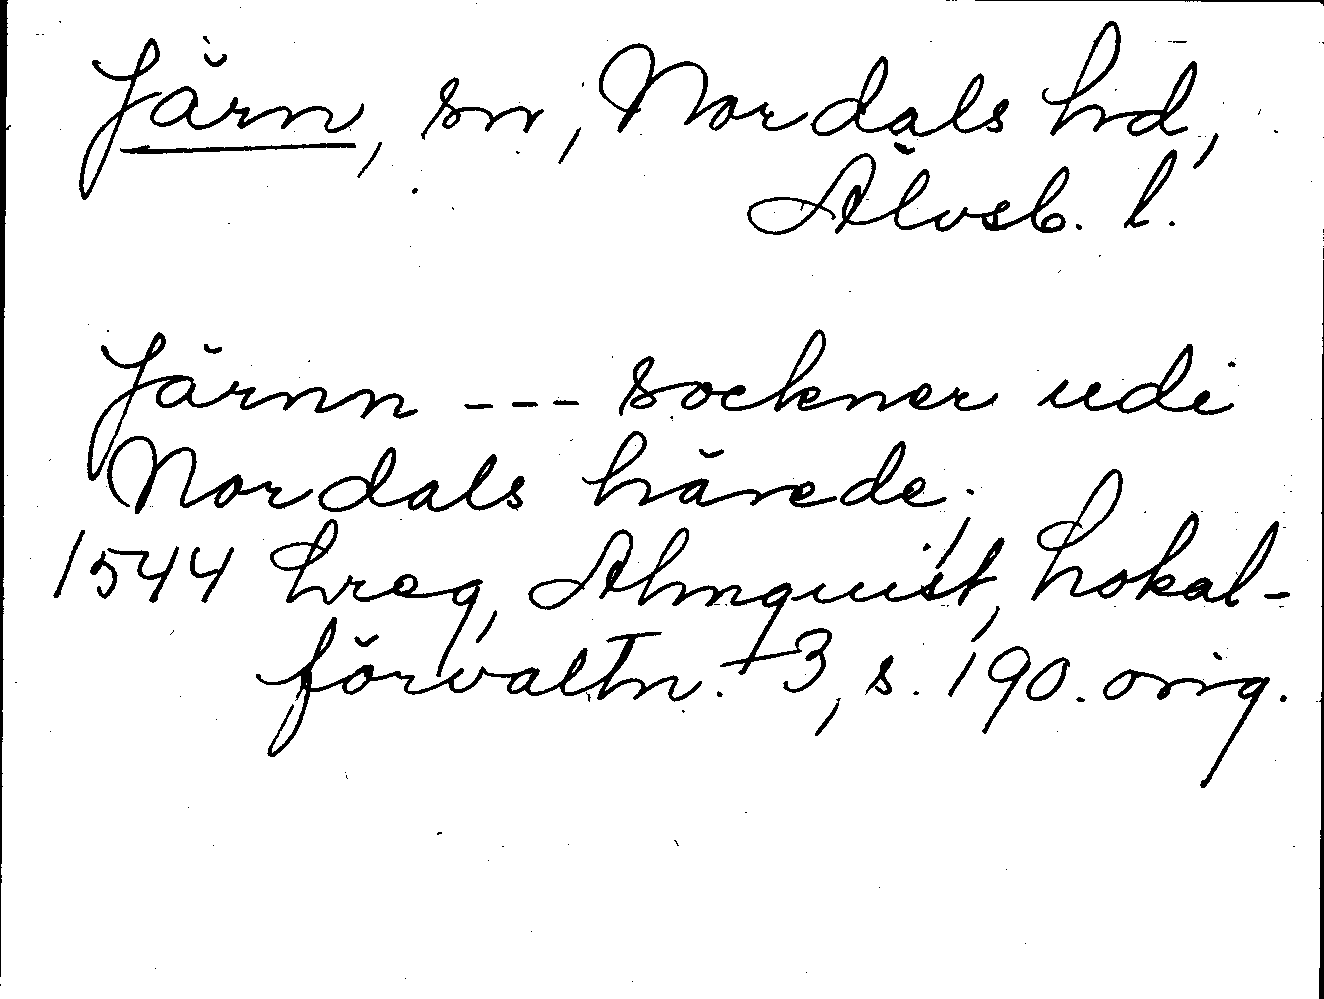 Järn, sn, Nordals hd,
Älvsb. l.
Järnn --- sockner udi
Nordals härede.
1544 hreg, Almquist, Lokal-
förvaltn. +3, s. 190. orig.